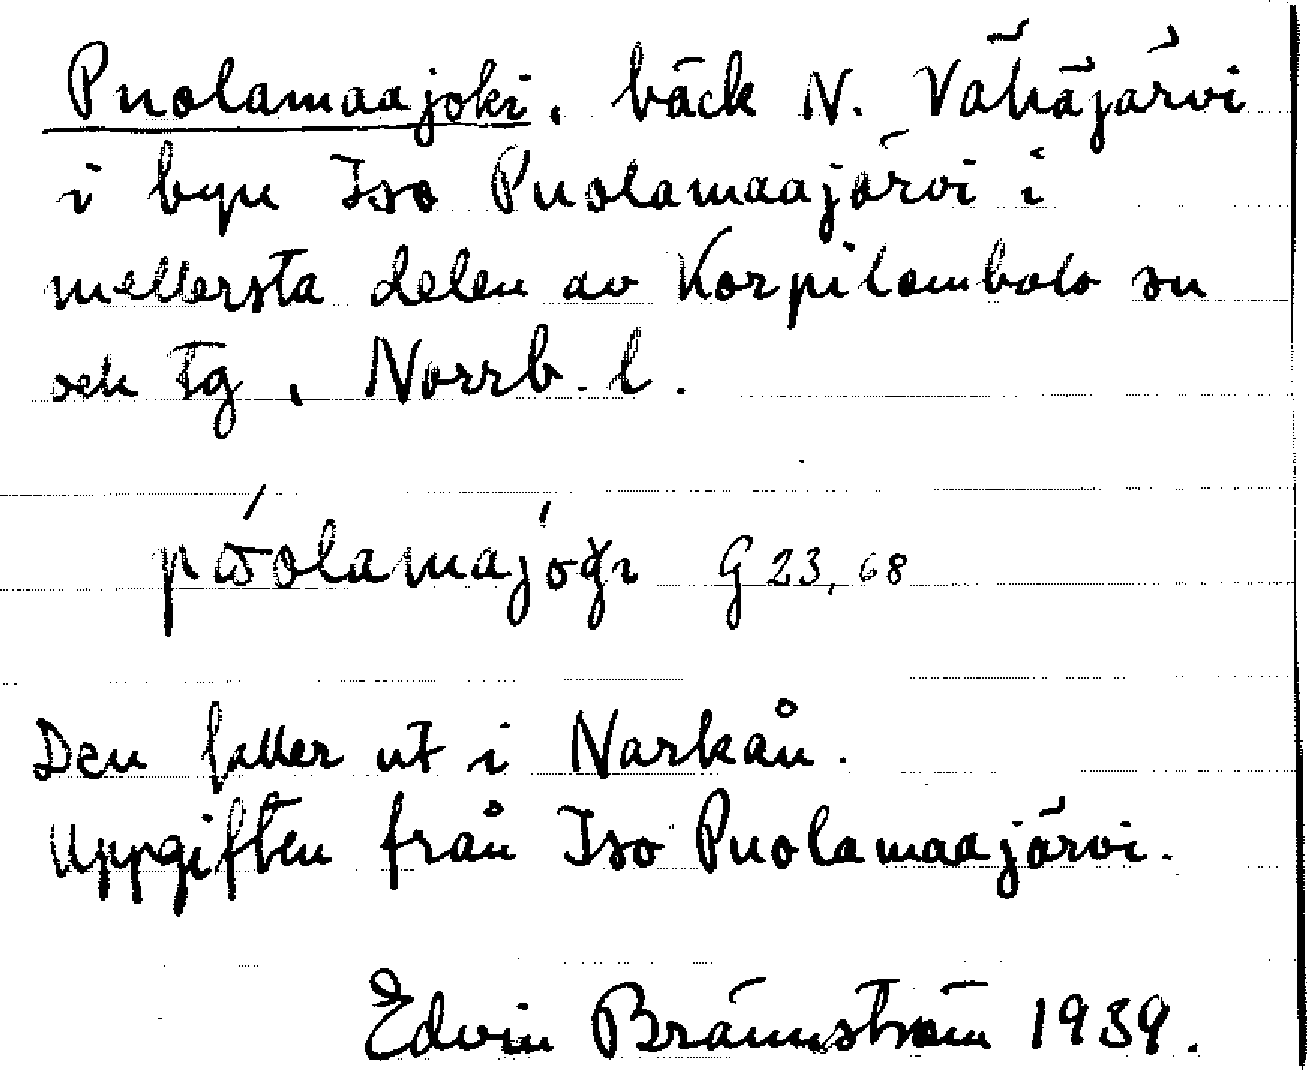 Puolamaajoki, bäck N. Vähäjärvi
i byn Iso Puolamaajärvi i
mellersta delen av Korpilombolo sn
och tg, Norrb. l.
G 23, 68
Den faller ut i Narkån.
Uppgiften från Iso Puolamaajärvi.
Edvin Brännström 1939.